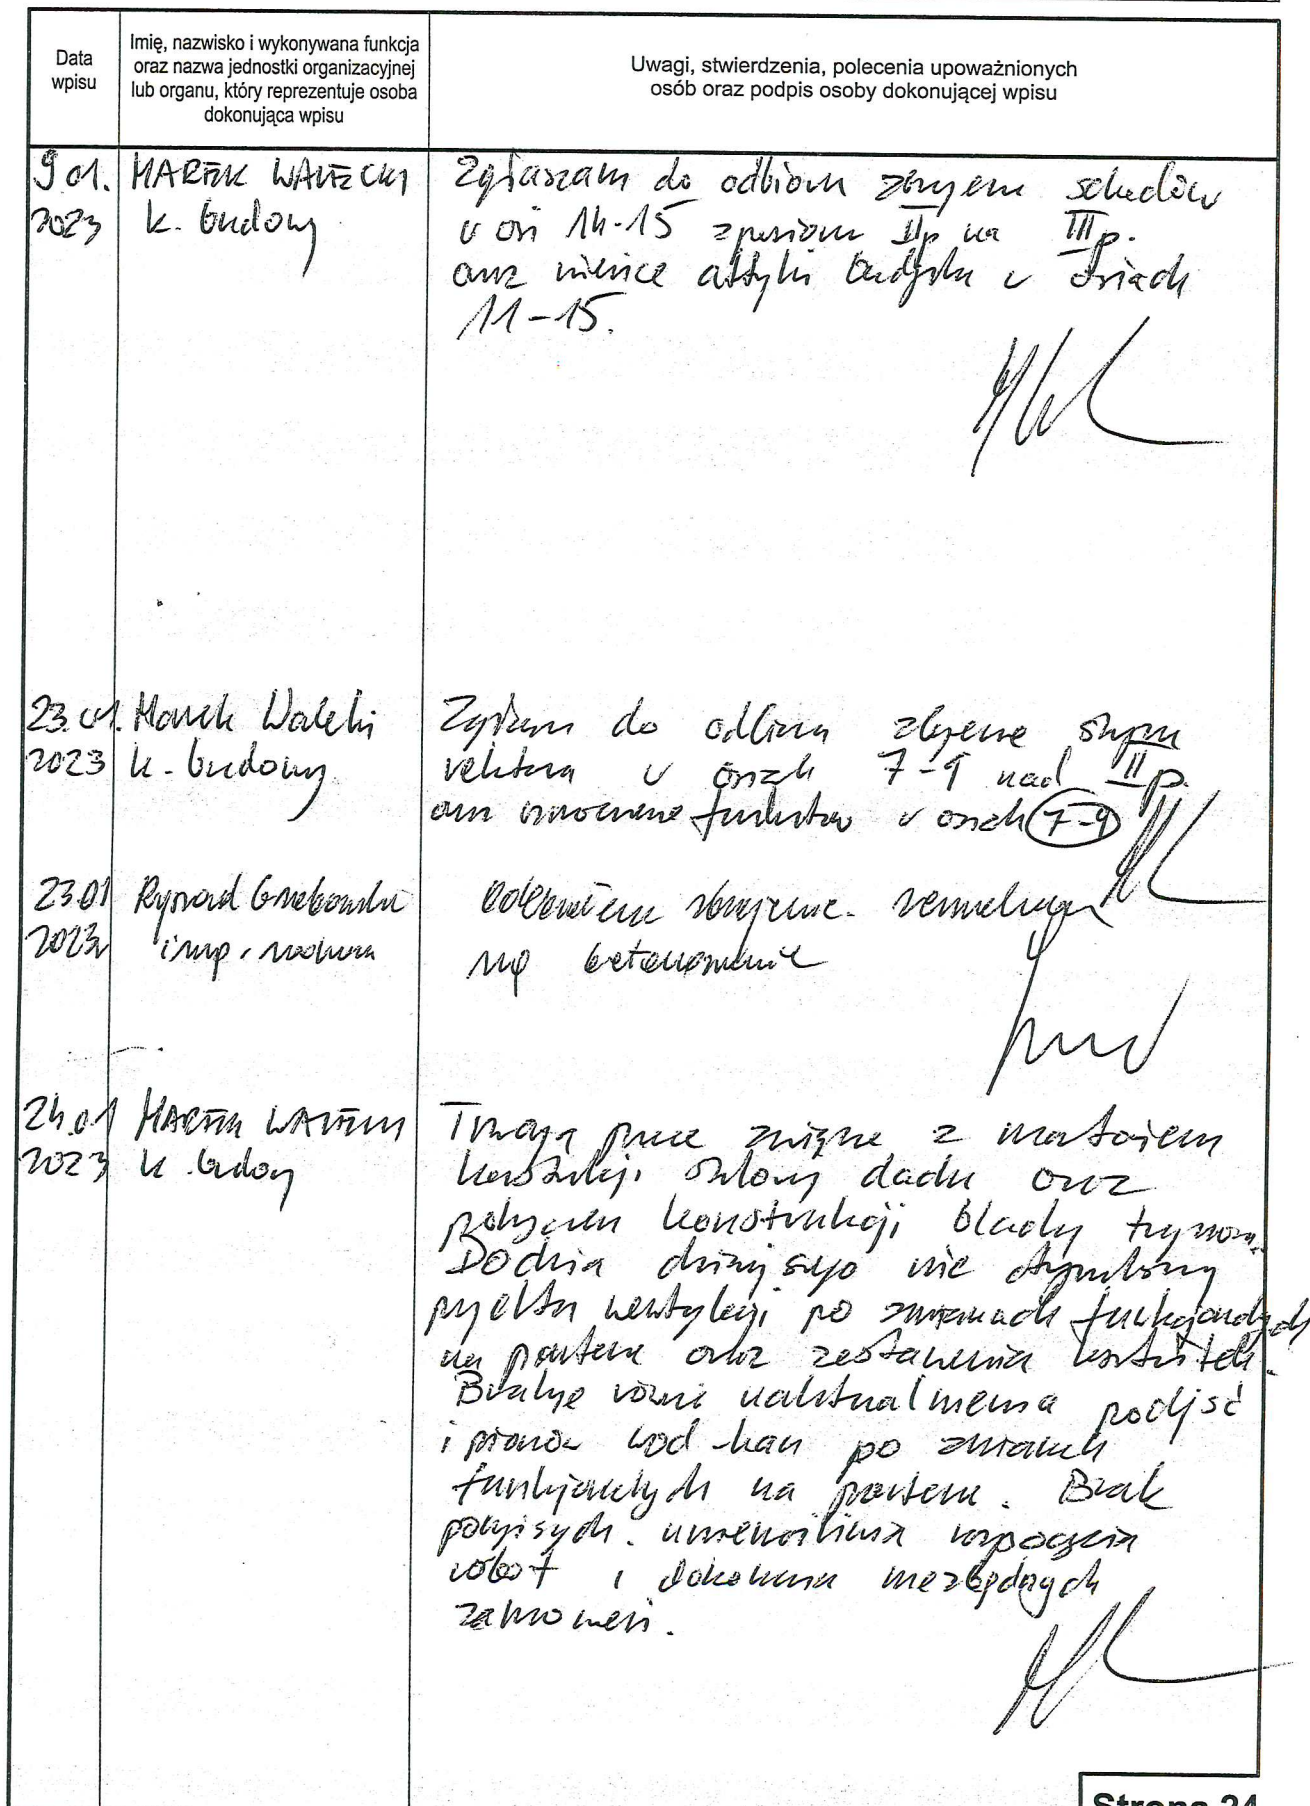 Data
wpisu
Imię, nazwisko i wykonywana funkcja
oraz nazwa jednostki organizacyjnej
lub organu, który reprezentuje osoba
dokonująca wpisu
Uwagi, stwierdzenia, polecenia upoważnionych
osób oraz podpis osoby dokonującej wpisu
9.01.
2023
MAREK WALECKI
k. budowy
Zgłaszam do odbioru zbrojenie schodów
w osi 14-15 z poziomu IIp na IIIp.
oraz wieńce attyki budynku w osiach
11-15.
23.01.
2023
Marek Walecki
k. budowy
Zgłaszam do odbioru zbrojenie stropu
w osiach 7-9 nad IIp.
oraz wzmocnienie fundamentów w osiach 7-9
23.01
2023
Ryszard
insp.
Odebrałem zbrojenie. zezwalam
na betonowanie
24.01
2023
MAREK WALECKI
k. budowy
Trwają prace związane z montażem
konstrukcji osłony dachu oraz
konstrukcji blachy
Do dnia dzisiejszego nie otrzymaliśmy
projektu wentylacji po zmianach funkcjonalnych
na parterze oraz zestawienia kształtek.
Brakuje również uaktualnienia podejść
i pionów wod-kan po zmianach
funkcjonalnych na parterze. Brak
powyższych uniemożliwia rozpoczęcia
robót i dokonania niezbędnych
zamówień.
Strona 24